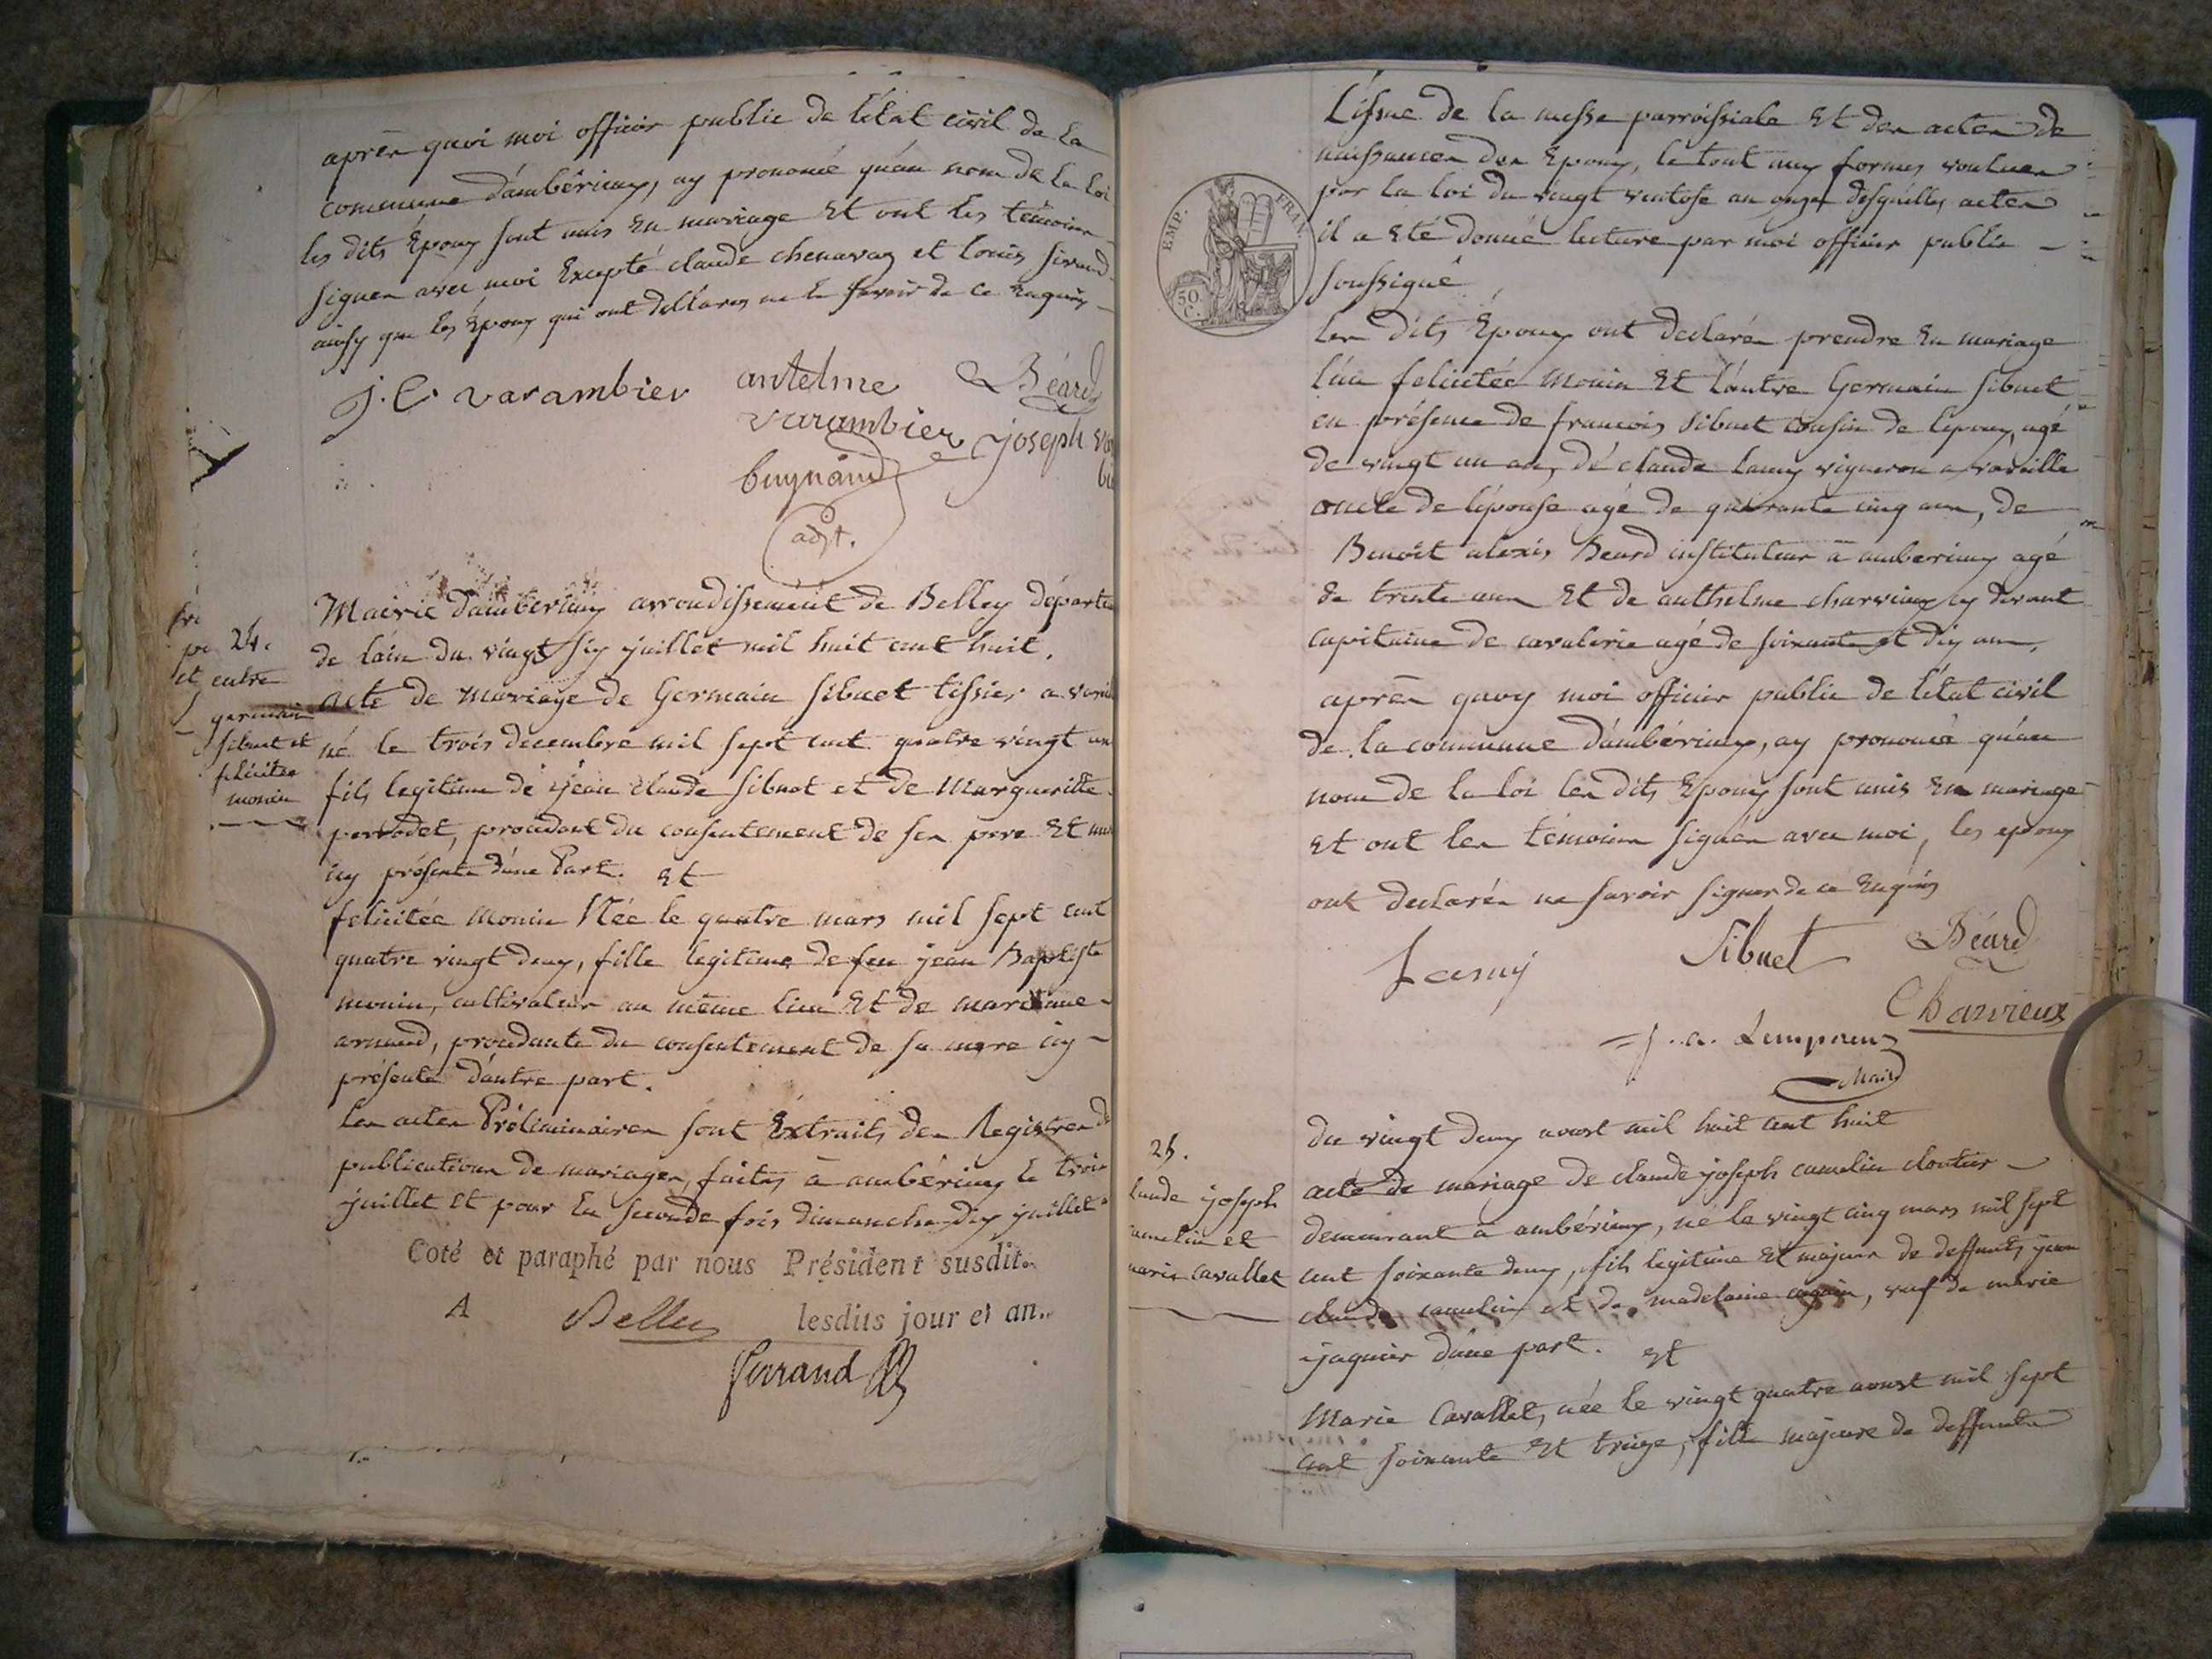 après quoi moi officier public de l'état civil de la
commune d'ambérieux, ay prononcé qu'au nom de la loi
les dits Epoux sont unis En mariage Et ont les témoins
signer avec moi Excepté claude chenavaz et louis sirand
ainsy que les Epoux qui ont declarer ne le savoir de ce Enquis
J. C. varambier
antelme
varambier
Béard
joseph va
buynand
adjt.
Mairie d'ambérieux arrondissement de Belley départe
de l'ain du vingt six juillet mil huit cent huit.
24.
entre
germain
sibuet et
felicitee
monin
acte de mariage de Germain sibuet tissier a varei
né le trois decembre mil sept cent quatre vingt un
fils legitime de jean claude sibuet et de Margueritte
perrodet, procedant du consentement de ses pere Et me
icy présents d'une Part. Et
felicitée monin Née le quatre mars mil sept cent
quatre vingt deux, fille legitime de feu jean Baptiste
monin, cultivateur au même lieu Et de marianne
arnaud, procedante du consentement de sa mere icy
présente d'autre part.
les actes Préliminaires sont Extraits des Registres de
publications de mariages, faites à ambérieux le trois
juillet et pour la seconde fois dimanche dix juillet
Coté et paraphé par nous Président susdit.
A Belley lesdits jour et an.
Ferrand
L'issue de la messe parroissiale Et des actes de
naissances des Epoux, le tout aux formes voulues
par la loi du vingt ventose an onze desquelles actes
il a Eté donné lecture par moi officier public
soussigné
EMP. FRAN.
50 C.
les dits Epoux ont declarés prendre En mariage
l'un felicitée monin Et l'autre Germain sibuet
en présence de francois sibuet cousin de lepoux, agé
de vingt un an, de claude lamy vigneron a vareille
oncle de l'épouse agé de quarante cinq ans, de
Benoit alexis Beard instituteur à amberieux agé
de trente ans Et de anthelme charvieux cy devant
capitaine de cavalerie agé de soixante et dix ans,
après quoy moi officier public de l'état civil
de la commune d'ambérieux, ay prononcé qu'au
nom de la loi les dits Epoux sont unis En mariage
Et ont les témoins signés avec moi, les epoux
ont declarés ne savoir signer de ce Enquis
Lamy
Sibuet
Béard
Charvieux
J. a. Lempereur
Maire
du vingt deux aoust mil huit cent huit
25.
laude joseph
camelin et
marie cavallet
acte de mariage de claude joseph camelin cloutier
demeurant à ambérieux, né le vingt cinq mars mil sept
cent soixante deux, fils legitime Et majeur de deffunts jean
claude camelin et de madelaine, veuf de marie
jaquier d'une part. Et
Marie Cavallet, née le vingt quatre aoust mil sept
cent soixante Et treize, fille majeure de deffunts